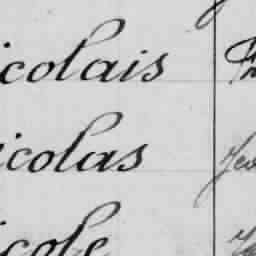 icolais
icolas
icole